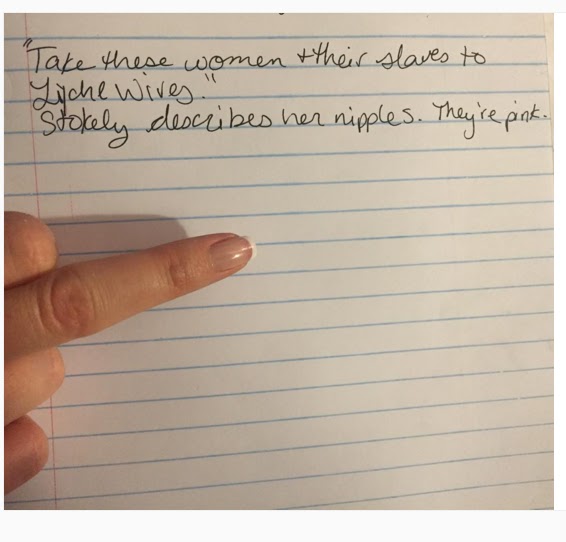 "Take these women + their slaves to
Lyche Wives."
Stokely describes her nipples. They're pink.